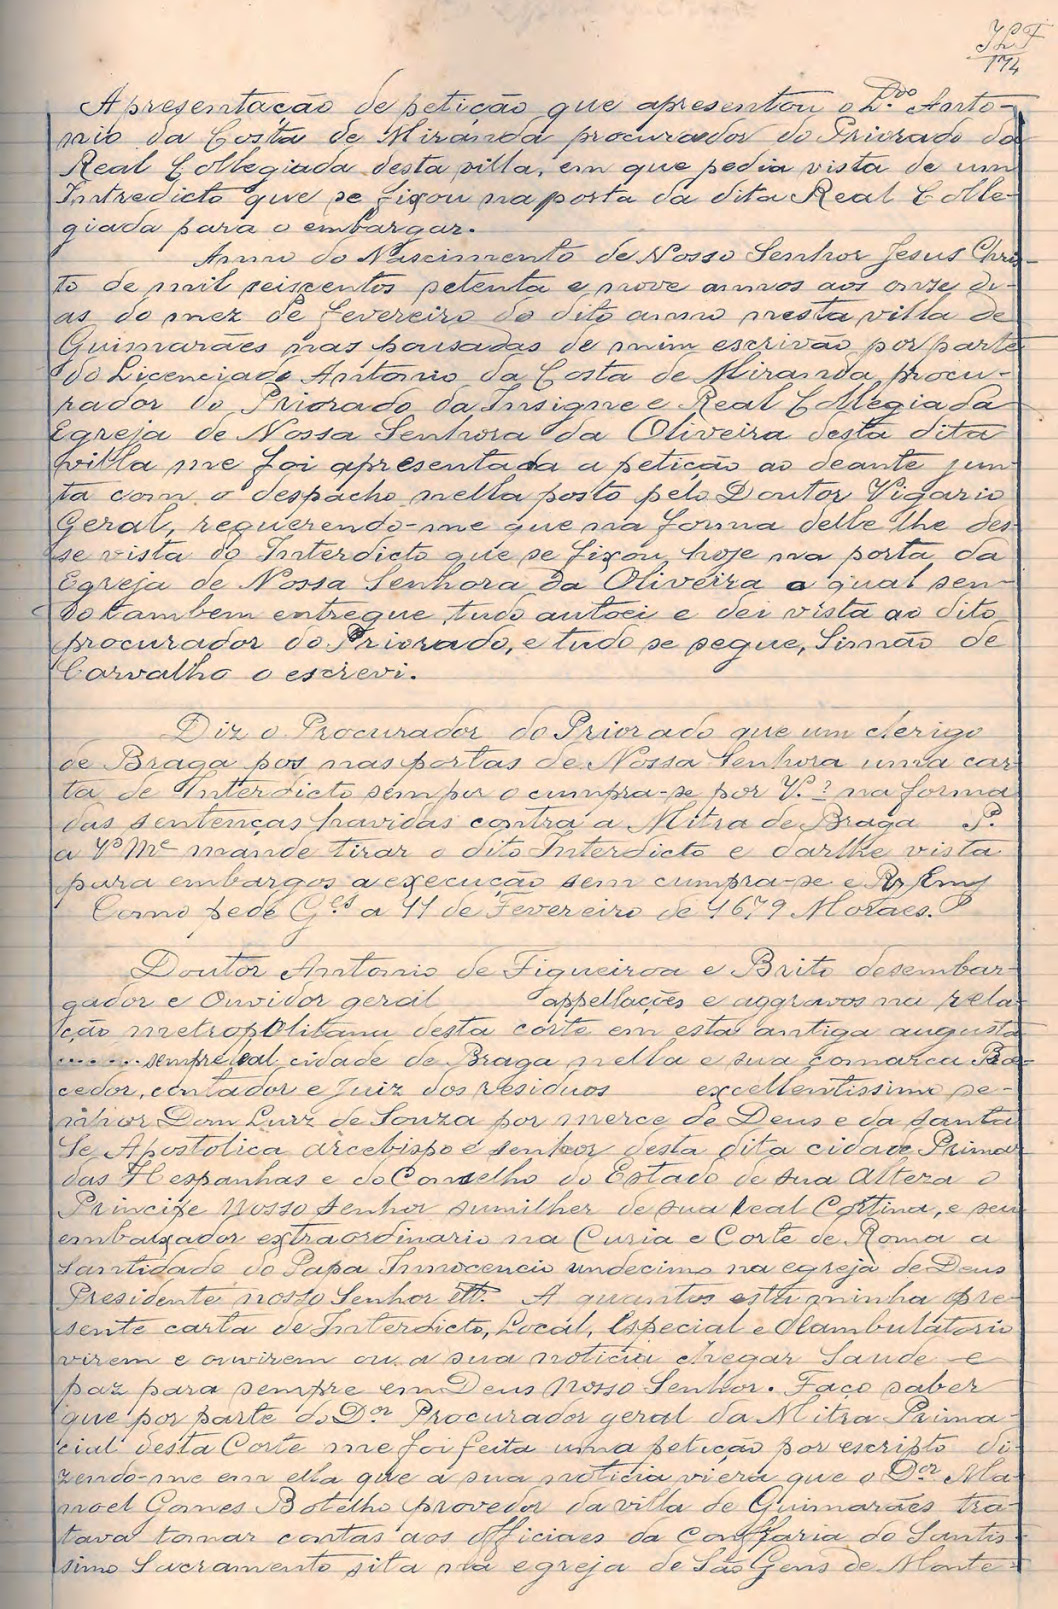 174
Apresentação de petição que apresentou o L.do Anto-
nio da Costa de Miranda procurador do Priorado da
Real Collegiada desta villa, em que pedia vista de um
Intredicto que se fixou na porta da dita Real Colle-
giada para o embargar.
Anno do Nascimento de Nosso Senhor Jesus Chris-
to de mil seiscentos setenta e nove annos aos onze di-
as do mez de Fevereiro do dito anno nesta villa de
Guimarães nas pousadas de mim escrivão por parte
do Licenciado Antonio da Costa de Miranda procu-
rador do Priorado da Insigne e Real Collegiada
Egreja de Nossa Senhora da Oliveira desta dita
villa me foi apresentada a petição ao deante jun-
ta com o despacho nella posto pelo Doutor Vigario
Geral, requerendo-me que na forma delle lhe des-
se vista do Interdicto que se fixou hoje na porta da
Egreja de Nossa Senhora da Oliveira o qual sen-
do tambem entregue tudo autoei e dei vista ao dito
procurador do Priorado, e tudo se segue, Simão de
Carvalho o escrevi.
Diz o Procurador do Priorado que um clerigo
de Braga pos nas portas de Nossa Senhora uma car-
ta de Interdicto sem por o cumpra-se por V. na forma
das sentenças havidas contra a Mitra de Braga P.
a V.ª M.ce mande tirar o dito Interdicto e darlhe vista
para embargos a execução sem cumpra-se e
Como pede G.es a 11 de Fevereiro de 1679 Moraes.
Doutor Antonio de Figueiroa e Brito desembar-
gador e Ouvidor geral appellações e aggravos na rela-
ção metropolitana desta côrte em esta antiga augusta
....... sempre leal cidade de Braga nella e sua comarca Pro-
cedor, contador e Juiz dos residuos excellentissimo se-
nhor Dom Luiz de Souza por merce de Deus e da Santa
Se Apostolica arcebispo e senhor desta dita cidade Primaz
das Hespanhas e do Conselho do Estado de sua Altera o
Principe Nosso Senhor sumilher de sua real Cortina, e seu
embaixador extraordinario na Curia e Corte de Roma a
Santidade do Papa Innocencio undecimo na egreja de Deus
Presidente nosso Senhor A quantos esta minha pre-
sente carta de Interdicto, Local, Especial e Deambulatorio
virem e ouvirem ou a sua noticia chegar Saude e
paz para sempre em Deus Nosso Senhor. Faço saber
que por parte do D.or Procurador geral da Mitra Prima-
cial desta Corte me foi feita uma petição por escripto di-
zendo-me em ella que a sua noticia viera que o D.or Ma-
noel Gomes Botelho provedor da villa de Guimarães tra-
tava tomar contas aos officiaes da Confraria do Santis-
simo Sacramento sita na egreja de São Gens de Monte-